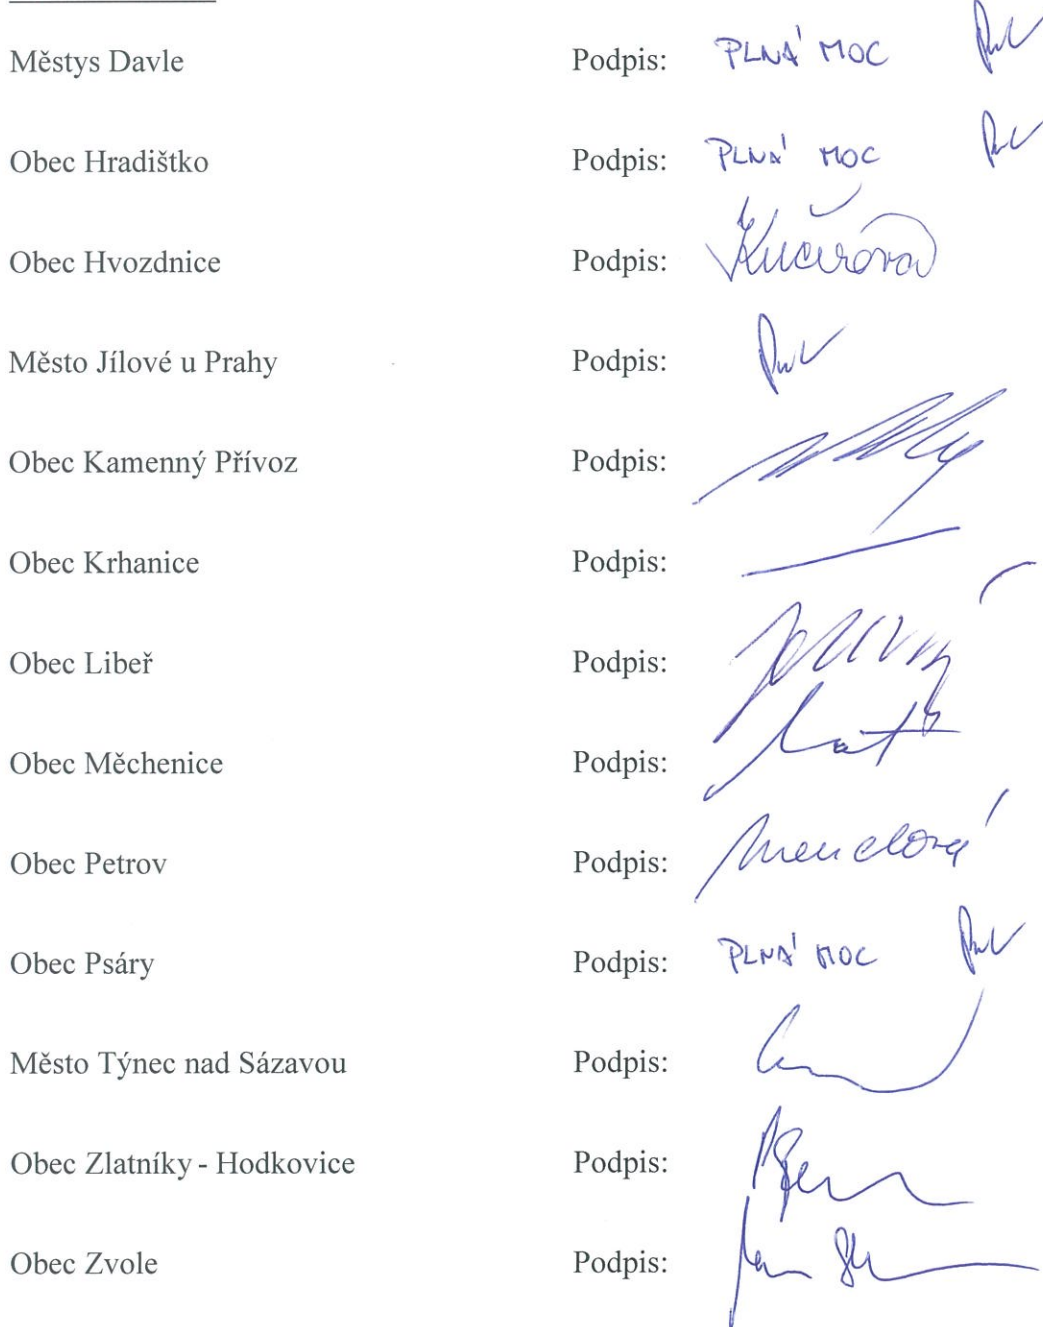 Městys Davle Podpis: PLNÁ MOC
Obec Hradištko Podpis: PLNÁ MOC
Obec Hvozdnice Podpis: Kučerová
Město Jílové u Prahy Podpis:
Obec Kamenný Přívoz Podpis:
Obec Krhanice Podpis:
Obec Libeř Podpis:
Obec Měchenice Podpis:
Obec Petrov Podpis:
Obec Psáry Podpis: PLNÁ MOC
Město Týnec nad Sázavou Podpis:
Obec Zlatníky - Hodkovice Podpis:
Obec Zvole Podpis: